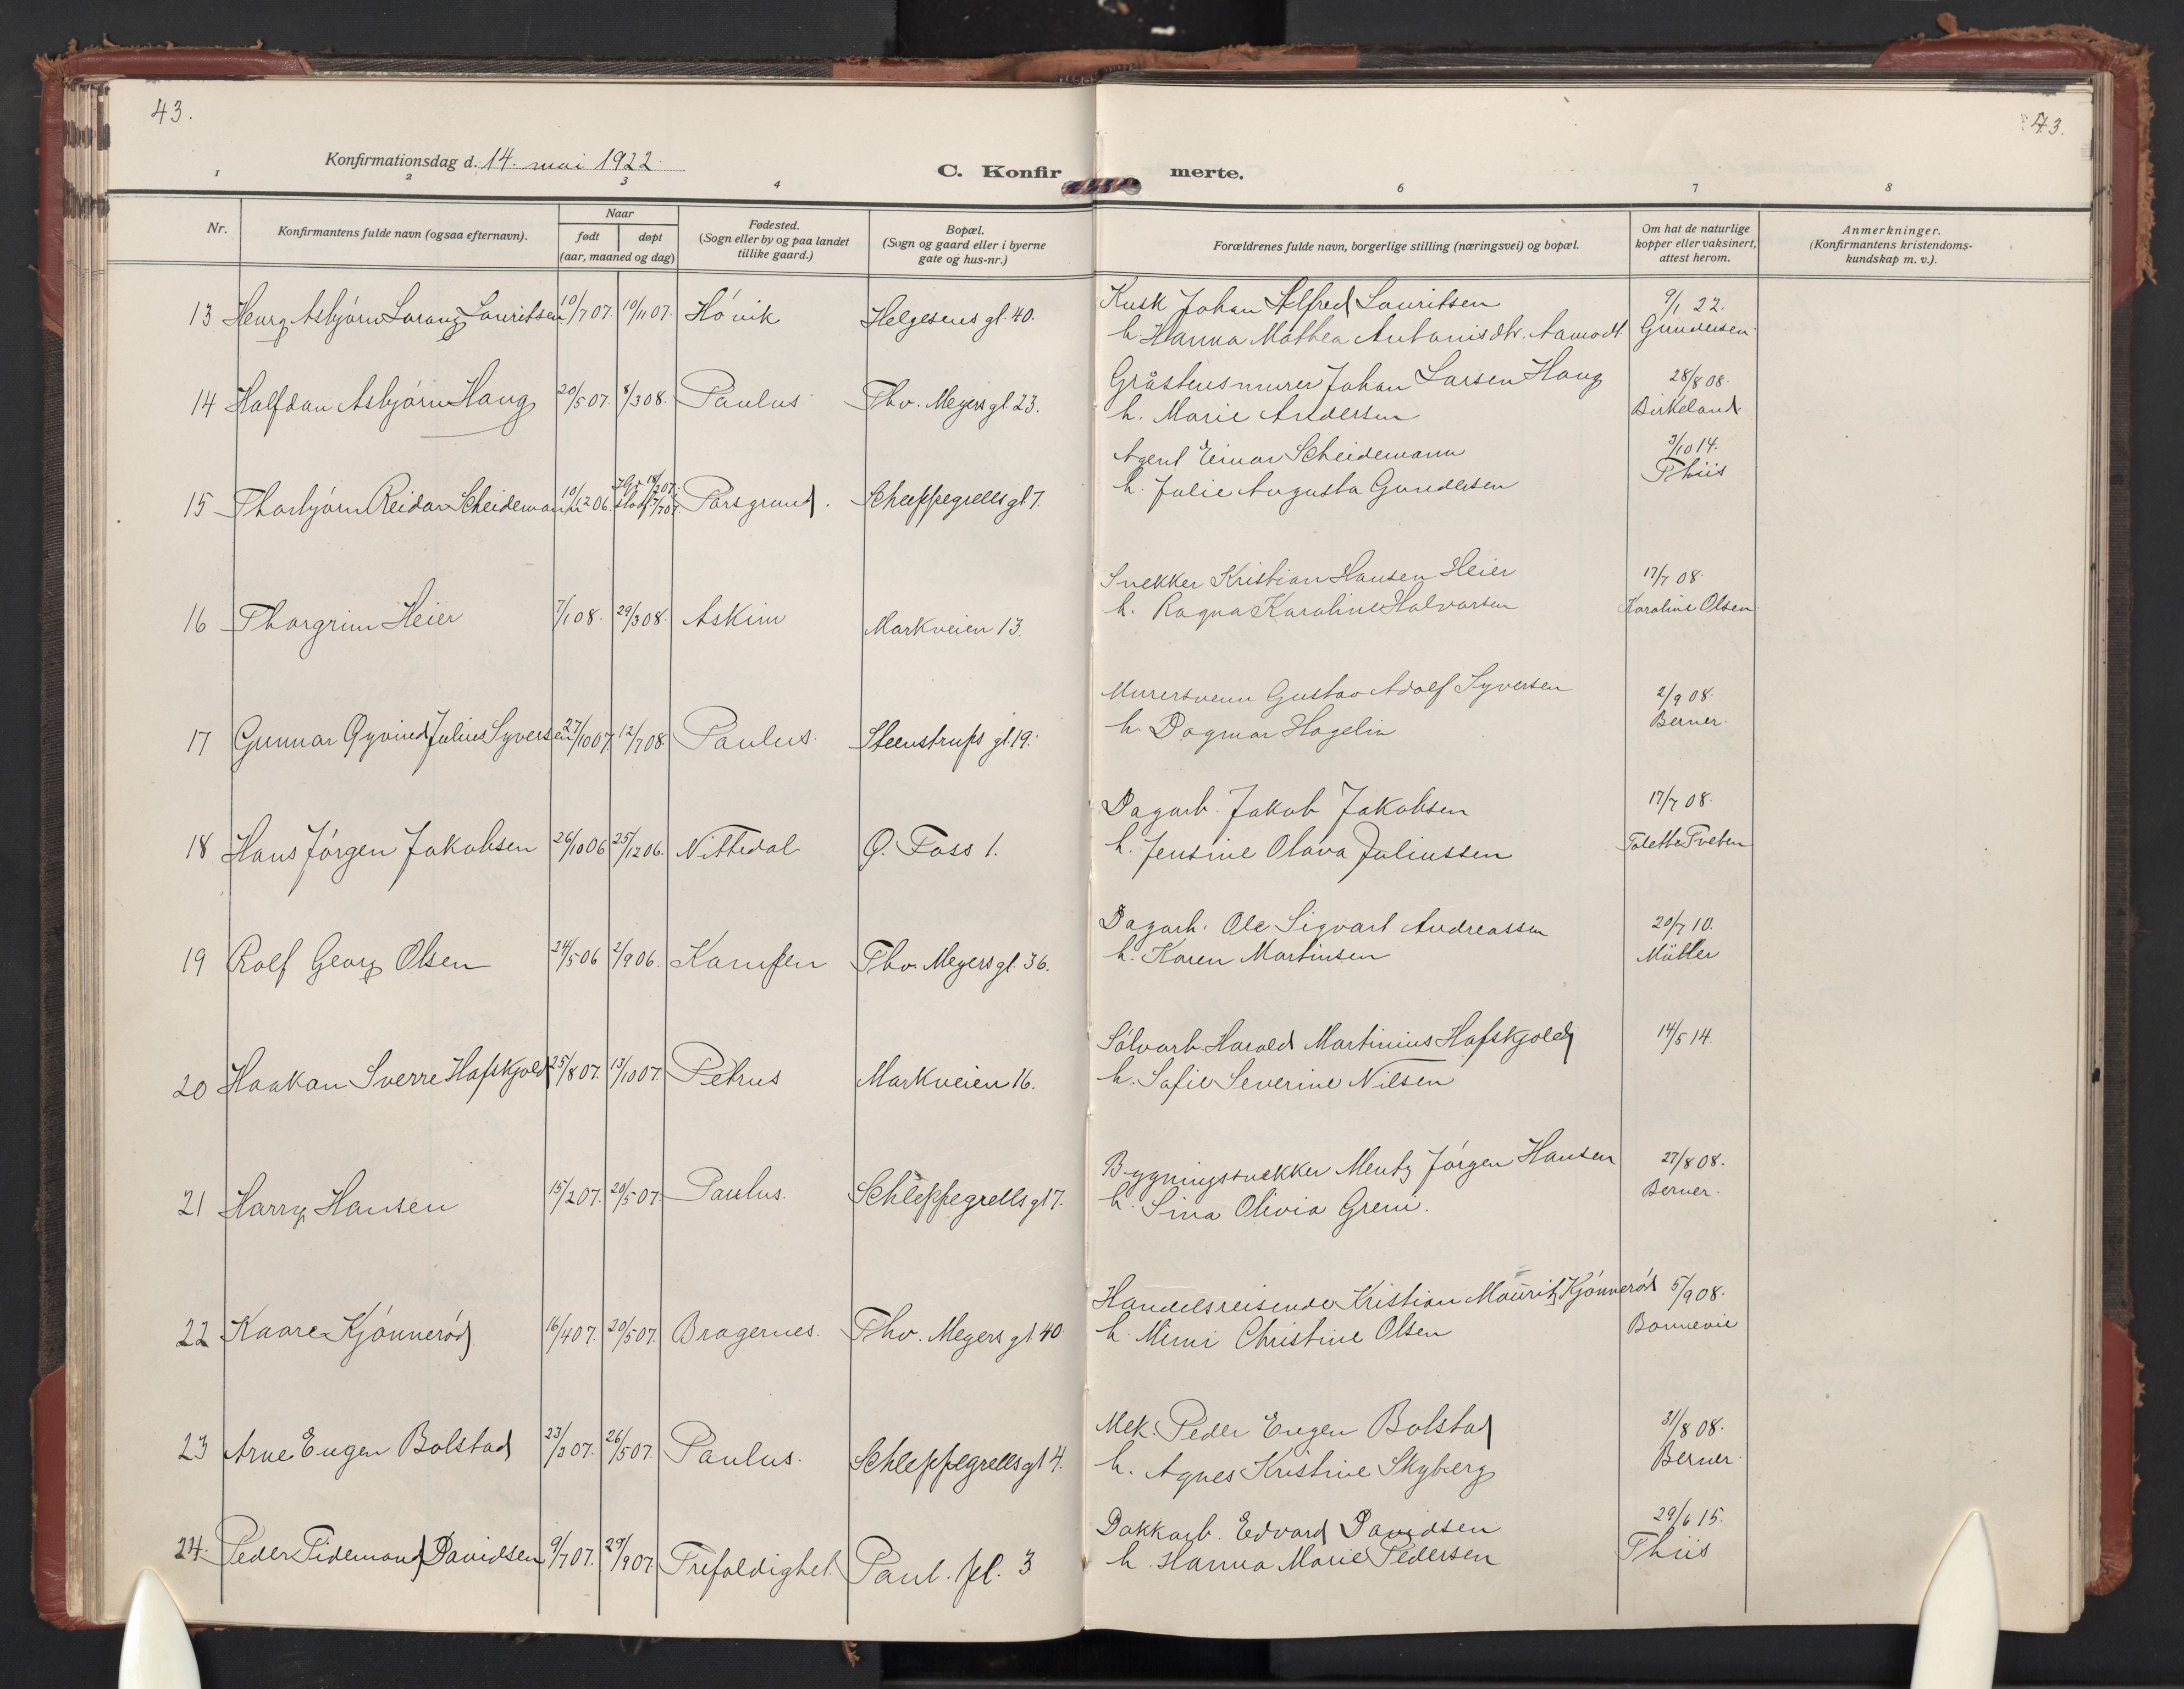 43.
43.
Konfirmationsdag d. 14. mai 1922.
C. Konfirmerte.
1 2 3 4 6 7 8
Nr.
Konfirmantens fulde navn (ogsaa efternavn).
Naar
født døpt
(aar, maaned og dag)
Fødested.
(Sogn eller by og paa landet
tillike gaard.)
Bopæl.
(Sogn og gaard eller i byerne
gate og hus-nr.)
Forældrenes fulde navn, borgerlige stilling (næringsvei) og bopæl.
Om hat de naturlige
kopper eller vaksinert,
attest herom.
Anmerkninger.
(Konfirmantens kristendoms-
kundskap m. v.).
13 Henry Asbjørn Lorang Lauritsen 10/7 07. 10/11 07. Høvik Helgesens gt. 40.
Kusk Johan Alfred Lauritsen
h. Hanna Mathea Antonisdtr. Aamodt
9/1 22.
Gundersen
14 Halfdan Asbjørn Haug 20/5 07. 8/3 08. Paulus Thv. Meyers gt. 23.
Gråstensmurer Johan Larsen Haug
h. Marie Andersen
28/8 08.
Birkeland
15 Thorbjørn Reidar Scheidemann 10/12 06. Porsgrund. Schleppegrells gt 7.
Agent Einar Scheidemann
h. Julie Augusta Gundersen
3/10 14.
Thiis
16 Thorgrim Heier 7/1 08. 29/3 08. Askim Markveien 13.
Snekker Kristian Hansen Heier
h. Ragna Karoline Halvorsen
17/7 08.
Karoline Olsen
17 Gunnar Øyvind Julius Syversen 27/10 07. 12/7 08. Paulus. Steenstrups gt. 19.
Murersvenn Gustav Adolf Syversen
h. Dagmar Hagelin
2/9 08.
Berner.
18 Hans Jørgen Jakobsen 26/10 06 25/12 06. Nittedal Ø. Foss 1.
Dagarb. Jakob Jakobsen
h. Jensine Olava Juliussen
17/7 08.
Tolette Tveten
19 Rolf Georg Olsen 24/5 06 2/9 06. Kampen Thv. Meyers gt. 36.
Dagarb. Ole Sigvart Andreassen
h. Karen Martinsen
20/7 10.
Müller
20 Haakon Sverre Hafskjold 25/8 07. 13/10 07. Petrus Markveien 16.
Sølvarb. Harald Martinius Hafskjold
h. Sofie Severine Nilsen
14/5 14.
21 Harry Hansen 15/2 07. 20/5 07. Paulus. Schleppegrells gt 7.
Bygningssnekker Mentz Jørgen Hansen
h. Sina Olivia Greni.
27/8 08.
Berner.
22 Kaare Kjønnerød 16/4 07. 20/5 07. Bragernes. Thv. Meyers gt 40
Handelsreisende Kristian Maurits Kjønnerød
h. Mimi Christine Olsen
5/9 08.
Bonnevie
23 Arne Eugen Bolstad 23/3 07. 26/5 07. Paulus. Schleppegrells gt 4.
Mek. Peder Eugen Bolstad
h. Agnes Kristine Skyberg
31/8 08.
Berner.
24. Peder Tidemand Davidsen 9/7 07. 29/9 07. Trefoldighet. Paul. pl. 3
Dokkarb. Edvard Davidsen
h. Hanna Marie Pedersen
29/6 15.
Thiis